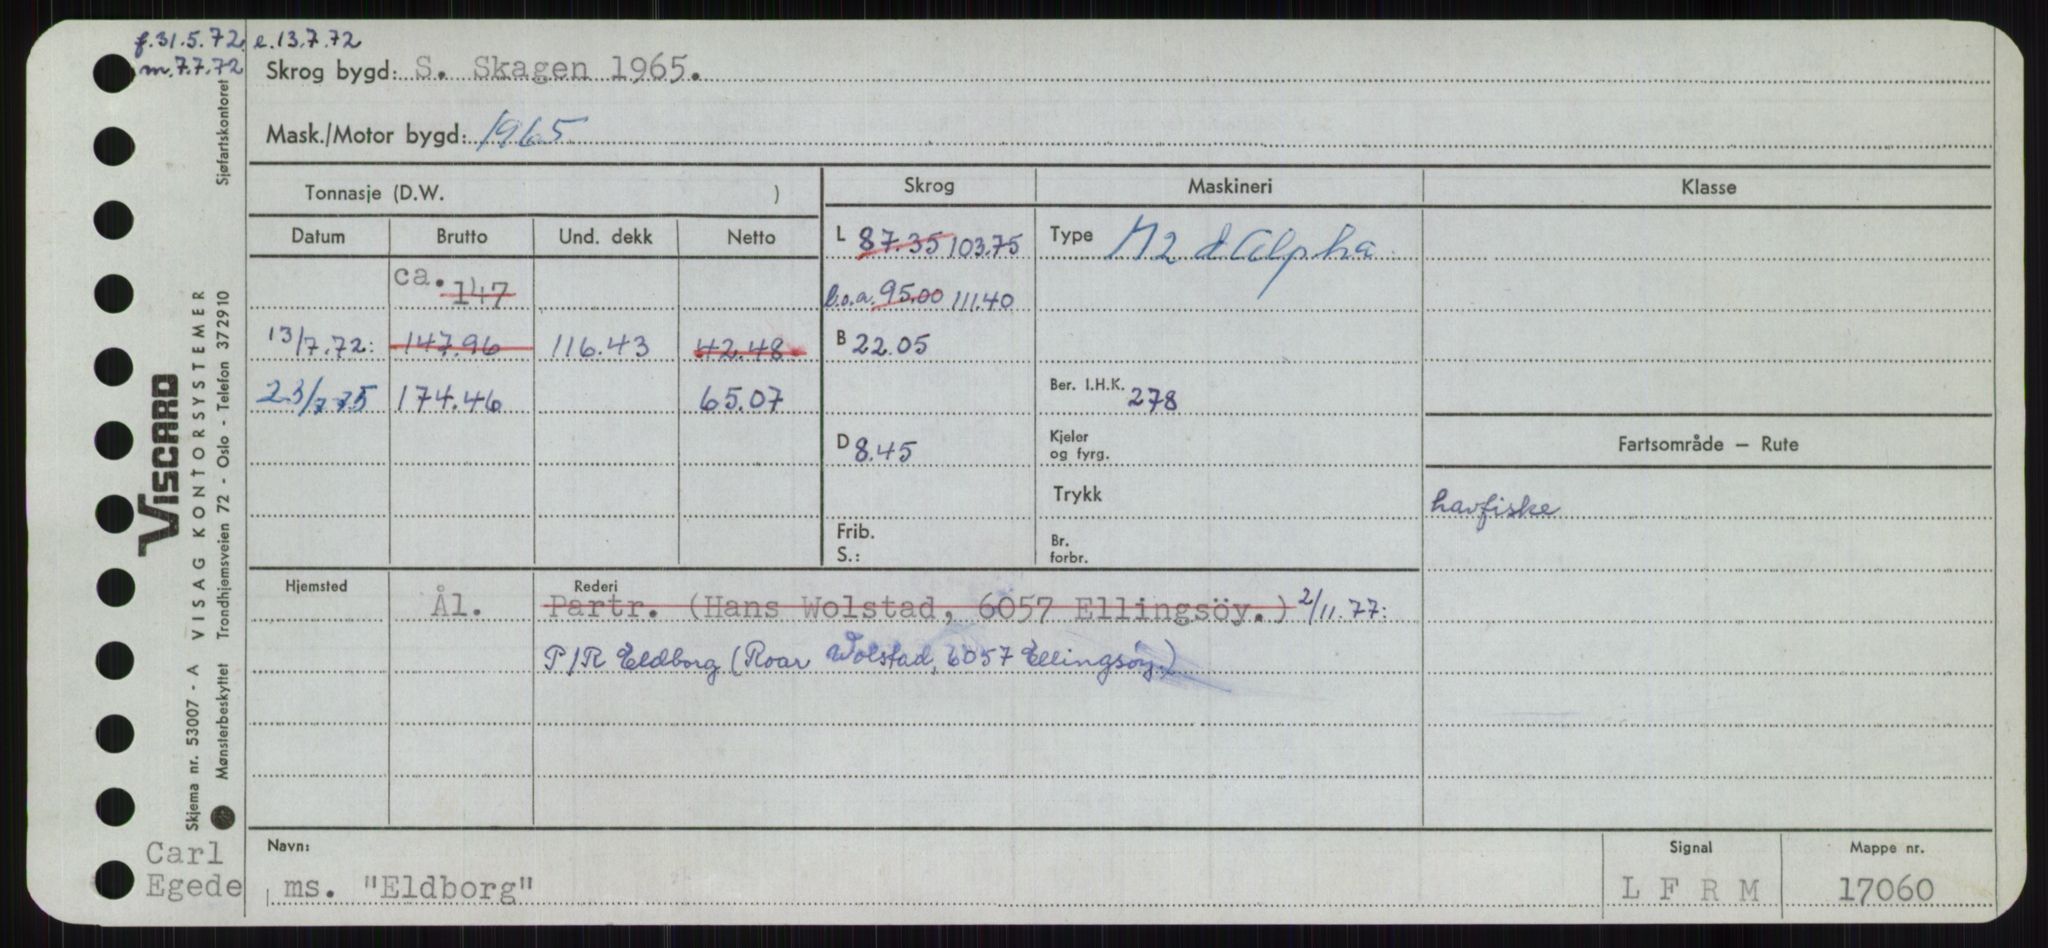 f.31.5.72 e.13.7.72
m.7.7.72
Skrog bygd: S. Skagen 1965.
Mask./Motor bygd: 1965
Tonnasje (D.W. ) Skrog Maskineri Klasse
Datum Brutto Und. dekk Netto
L 87.35 103.75 Type
ca. 147
b.o.a. 95.00 111.40
13/7.72: 147.96 116.43 42.48 B 22.05
23/7.75 174.46 65.07 Ber. I.H.K. 278
D 8.45 Kjeler og fyrg.
Fartsområde – Rute
Trykk
havfiske
Frib.
S.:
Br.
forbr.
Hjemsted Rederi
Ål. Partr. (Hans Wolstad, 6057 Ellingsöy.) 2/11.77:
P/R Eldborg (Roar Wolstad, 6057 Ellingsøy.)
Navn: Signal Mappe nr.
ms. "Eldborg" L F R M 17060
Carl
Egede
Sjøfartskontoret
VISCARD
VISAG KONTORSYSTEMER
Trondhjemsveien 72 - Oslo - Telefon 372910
Skjema nr. 53007 - A
Mønsterbeskyttet